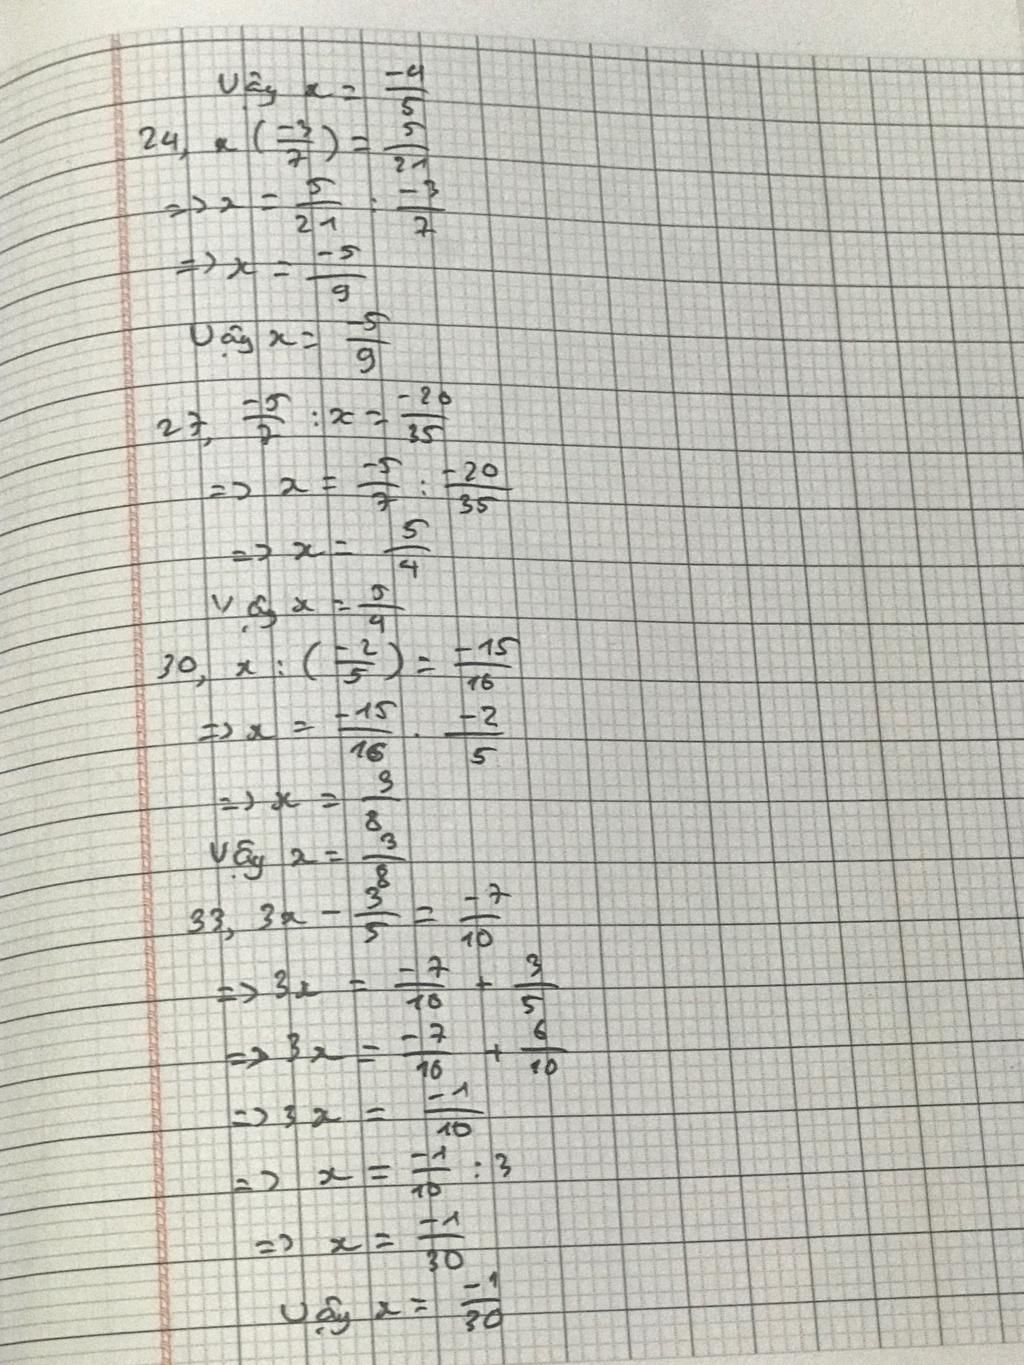 Vậy x = -4/5
24, x (-3/7) = 5/21
=> x = 5/21 : -3/7
=> x = -5/9
Vậy x = -5/9
27, -5/7 : x = -20/35
=> x = -5/7 : -20/35
=> x = 5/4
Vậy x = 5/4
30, x : (-2/5) = -15/16
=> x = -15/16 . -2/5
=> x = 3/8
Vậy x = 3/8
33, 3x - 3/5 = -7/10
=> 3x = -7/10 + 3/5
=> 3x = -7/10 + 6/10
=> 3x = -1/10
=> x = -1/10 : 3
=> x = -1/30
Vậy x = -1/30